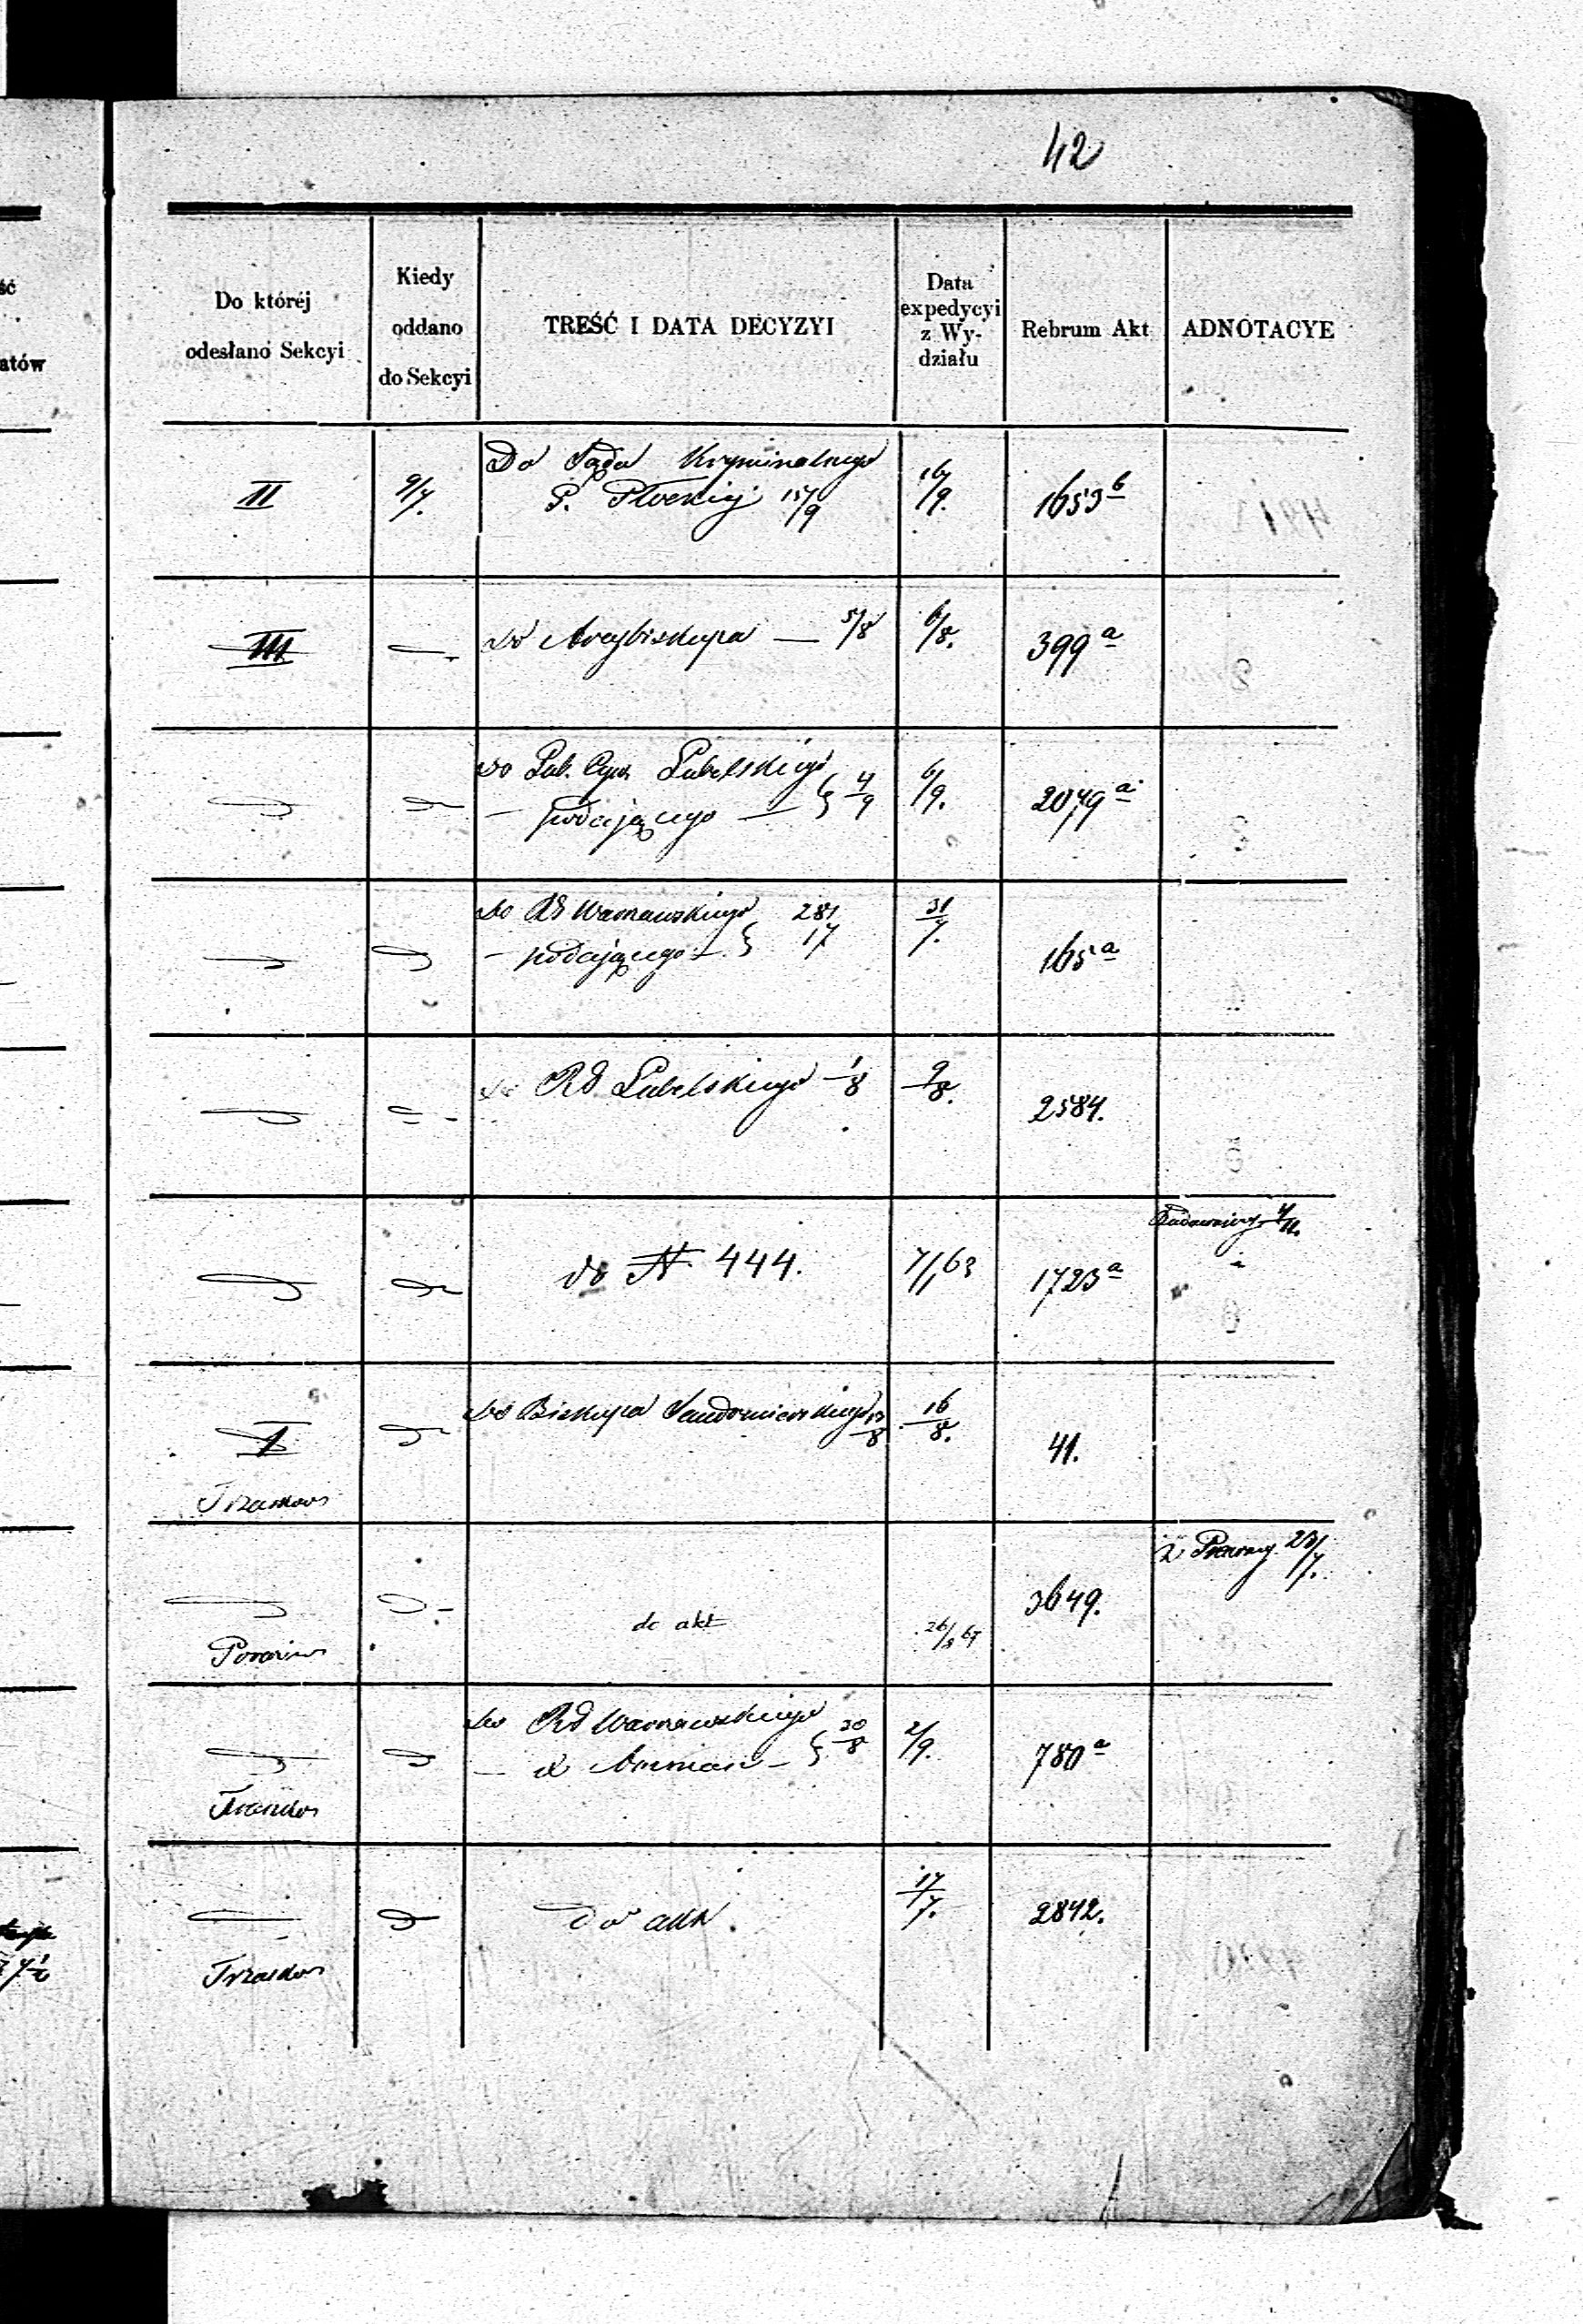 42
ść
atów
Do któréj
odesłano Sekcyi
Kiedy
oddano
do Sekcyi
TREŚĆ I DATA DECYZYI
Data
expedycyi
z Wy-
działu
Rebrum Akt
ADNOTACYE
II
9/7.
Do Sądu Kryminalnego
P. Płockiej 15/9
16/9.
1653 b
III
Do Arcybiskupa — 5/8
6/8.
399 a
Do Lubelskiego
— podającego — } 4/9
6/9.
2079 a
Do Rd Warszawskiego
— podającego — }
31/7.
165 a
do Rd Lubelskiego 1/8
9/8.
2584.
do N. 444.
7/1 63
1723 a
I
Do Biskupa Sandomierskiego 13/8
16/8.
41.
do akt
26/8 67
3649.
23/7.
Do Rd Warszawskiego
} 30/8
2/9.
780 a
do akt.
17/7.
2842.